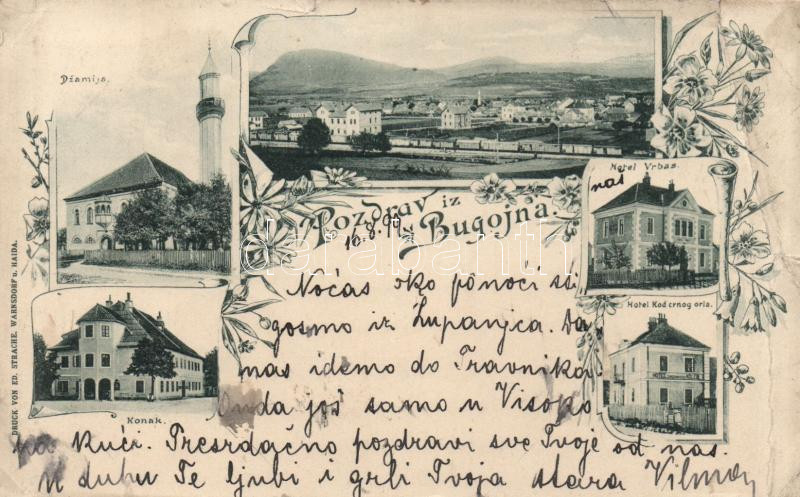 Džamija.
Hotel Vrbas.
naš
Pozdrav iz
Bugojna.
16.8.
Hotel Kod crnog orla.
Konak.
DRUCK VON ED. STRACHE, WARNSDORF u. HAIDA.
darabanth
Noćas oko pônoći sti
gosmo iz Županjca. Da
nas idemo do Travnika.
Onda još samo u Visoko
pa kući. Presrdačno pozdravi sve Tvoje od nas.
U duhu Te ljubi i grli Tvoja stara Vilma